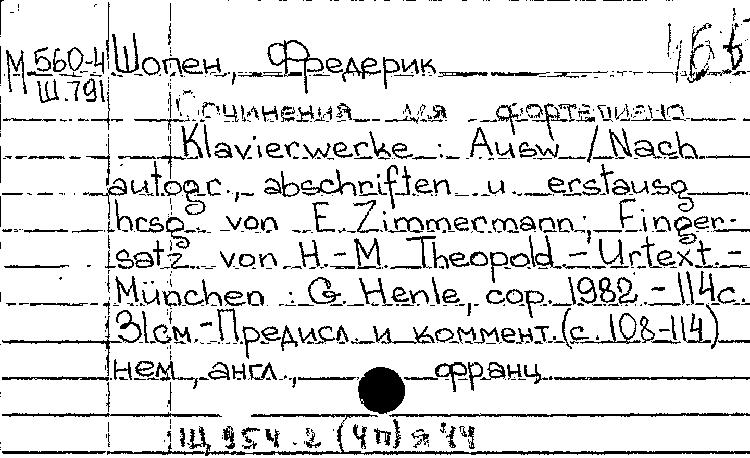 М 560-4 Шопен, Фредерик
Ш.791
Сочинения для фортепиано
Klavierwerke : Ausw / Nach
autogr., abschriften u. erstausg
hrsg von E. Zimmermann; Finger-
satz von H.-M. Theopold. - Urtext. -
München : G. Henle, cop. 1982. - 114с.
31см. - Предисл. и коммент. (с. 108-114)
нем, англ., франц
Щ 954.2 (4П) я 44